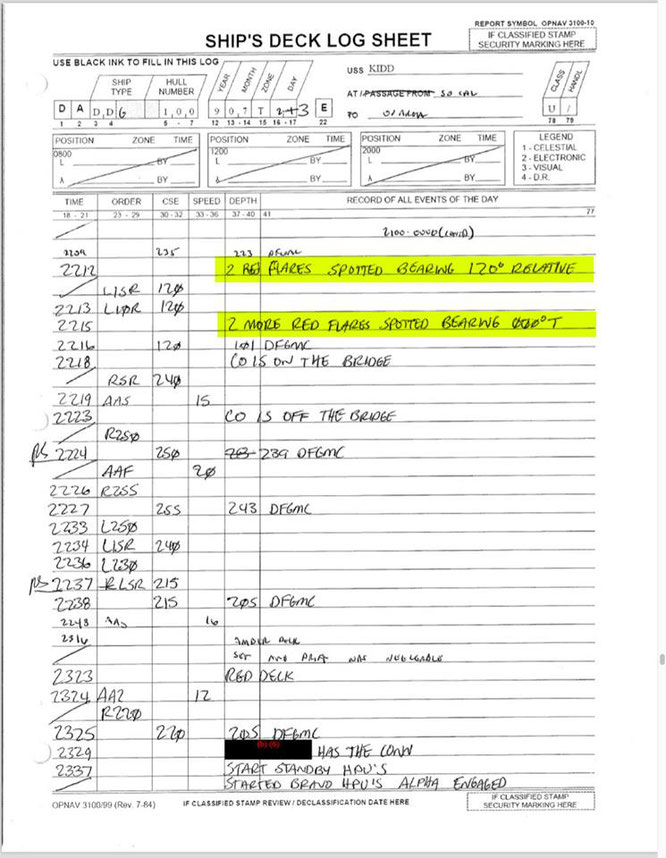 REPORT SYMBOL OPNAV 3100-10
SHIP'S DECK LOG SHEET
IF CLASSIFIED STAMP
SECURITY MARKING HERE
USE BLACK INK TO FILL IN THIS LOG
SHIP TYPE
HULL NUMBER
YEAR MONTH ZONE DAY
USS KIDD
CLASS HANDL
D A D, D G 1, 0, 0 9 0, 7 T E
AT / PASSAGE FROM SO CAL
TO
U /
1 2 3 4 5 - 7 12 13 - 14 15 16 - 17 22
78 79
POSITION ZONE TIME POSITION ZONE TIME POSITION ZONE TIME LEGEND
0800 1200 2000 1 - CELESTIAL
L BY L BY L BY 2 - ELECTRONIC
3 - VISUAL
λ BY λ BY λ BY 4 - D.R.
TIME ORDER CSE SPEED DEPTH RECORD OF ALL EVENTS OF THE DAY
18 - 21 23 - 29 30 - 32 33 - 36 37 - 40 41 77
235 223 DFGMC
2212 2 RED FLARES SPOTTED BEARING 120° RELATIVE
L15R 120
2213 L10R 120
2215 2 MORE RED FLARES SPOTTED BEARING 000°T
2216 120 101 DFGMC
2218 CO IS ON THE BRIDGE
R5R 240
2219 AAS 15
2223 CO IS OFF THE BRIDGE
R250
2224 250 203 239 DFGMC
AAF 20
2226 R255
2227 255 243 DFGMC
2233 L250
2234 L15R 240
2236 L230
2237 RL5R 215
2238 215 205 DFGMC
2243 AAS 16
2316
SET AND WAS NEGLIGABLE
2323 RED DECK
2324 AA2 12
R220
2325 220 205 DFGMC
2329 (b) (6) HAS THE CONN
2337 START STANDBY HPU'S
STARTED BRAVO HPU'S ALPHA ENGAGED
OPNAV 3100/99 (Rev. 7-84)
IF CLASSIFIED STAMP REVIEW / DECLASSIFICATION DATE HERE
IF CLASSIFIED STAMP
SECURITY MARKING HERE